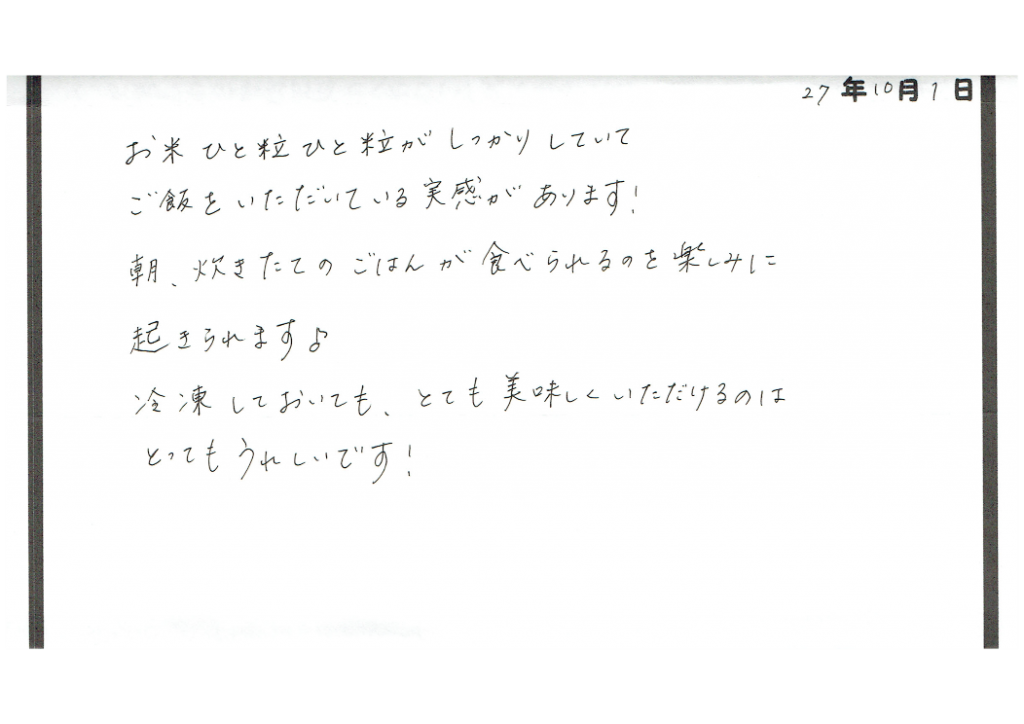 27年10月1日
お米ひと粒ひと粒がしっかりしていて
ご飯をいただいている実感があります!
朝、炊きたてのごはんが食べられるのを楽しみに
起きられます♪
冷凍しておいても、とても美味しくいただけるのは
とってもうれしいです!